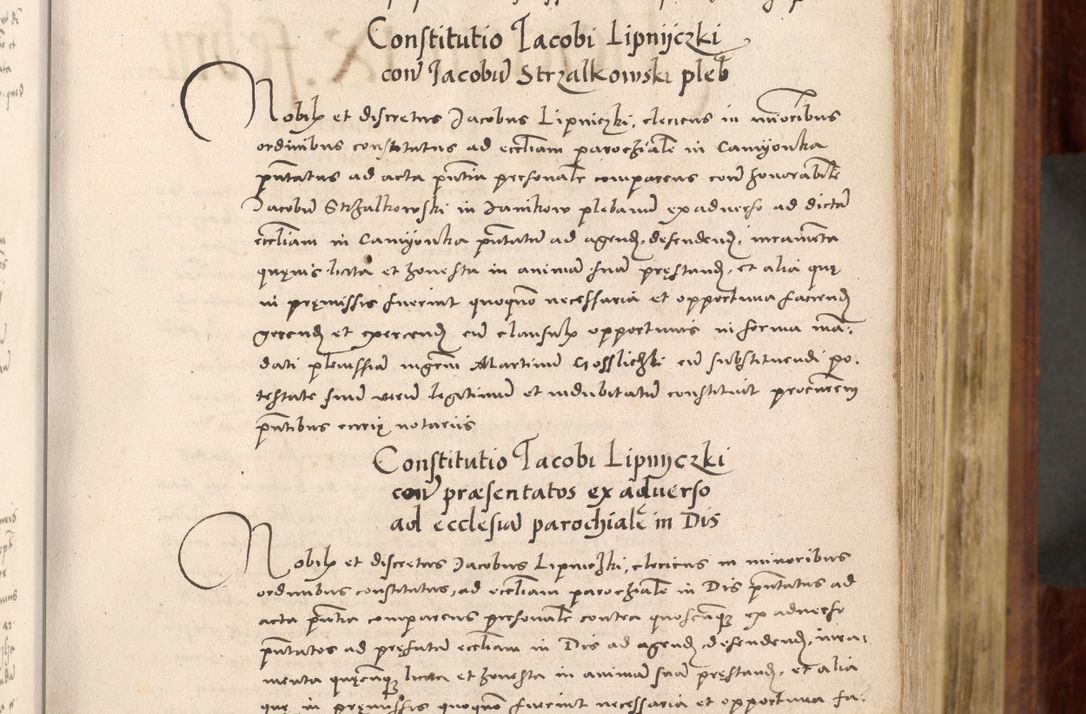 Constitutio Iacobi Lipnijczki
con͂ Jacobu͂ Strzalkowski pleb
Nobilis et discretus Jacobus Lipniczki, clericus in minoribus
ordinibus constitutus ad eccl͂iam parochiale͂ in Camijonka
pn͂tatus ad acta pn͂tia personal͂r comparens con͂ honorabile͂
Jacobu͂ Strzalkowski in Janikow plebanum ex adverso ad dicta͂
eccl͂iam in Camijonka pn͂tatu͂ ad agend, defendend, iurame͂nta
quęvis licita et honesta in anima͂ sua͂ pręstand, et alia quę
in pręmissis fuerint quoquo͂ necessaria et opportuna faciend
gerend et exercend cu͂ clausulis opportunis in forma man͂-
dati plenissia͂ ingen͂m Martinu͂ Gosslichki cu͂ substituendi po-
testate suu͂ veru͂ legitimum et indubitatu͂ constituit procurem
pn͂tibus notariis
Constitutio Iacobi Lipnijczki
con͂ præsentatos ex adverso
ad ecclesia͂ parochiale͂ in Dis
Nobilis et discretus Jacobus Lipniczki, clericus in minoribus
ordinibus constitutus, ad eccl͂iam parochiale͂ in Dis pn͂tatus ad
acta pn͂tia comparens personal͂r contra quoscu͂q ex adverso
pn͂tatos ad pręfatu͂ eccl͂iam in Dis ad agend, defendend, iura-
menta quęcu͂q licita et honesta in anima͂ sua͂ pręstand, et alia
quę in pręmissis quoquo͂ fuerint necessaria et opportuna fa-